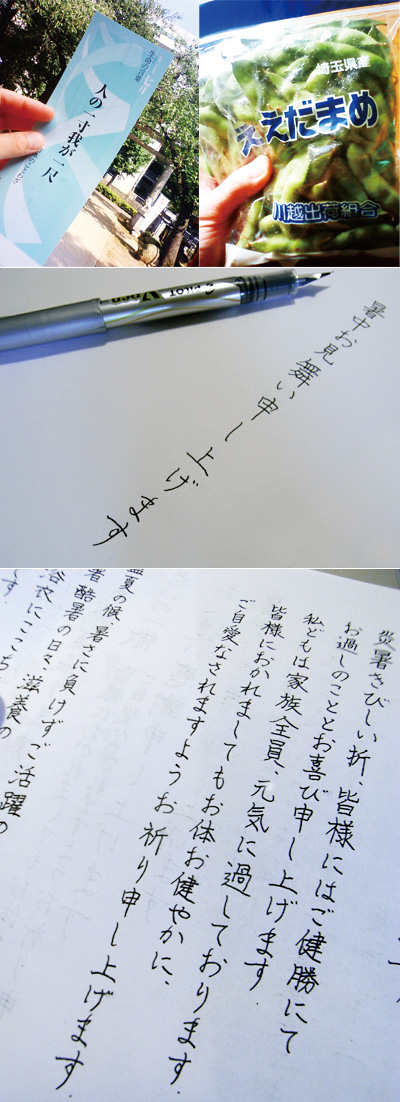 生命の言葉
人の一寸我が一尺
埼玉県産
ええだまめ
川越出荷組合
PILOT
暑中お見舞い申し上げます
災暑きびしい折、皆様にはご健勝にて
お過しのこととお喜び申し上げます.
私どもは家族全員、元気に過しております.
皆様におかれましてもお体お健やかに、
ご自愛なされますようお祈り申し上げます.
夏の候 暑さに負けずご活躍の
暑 酷暑の日々 滋養の
浴衣にここち
す.